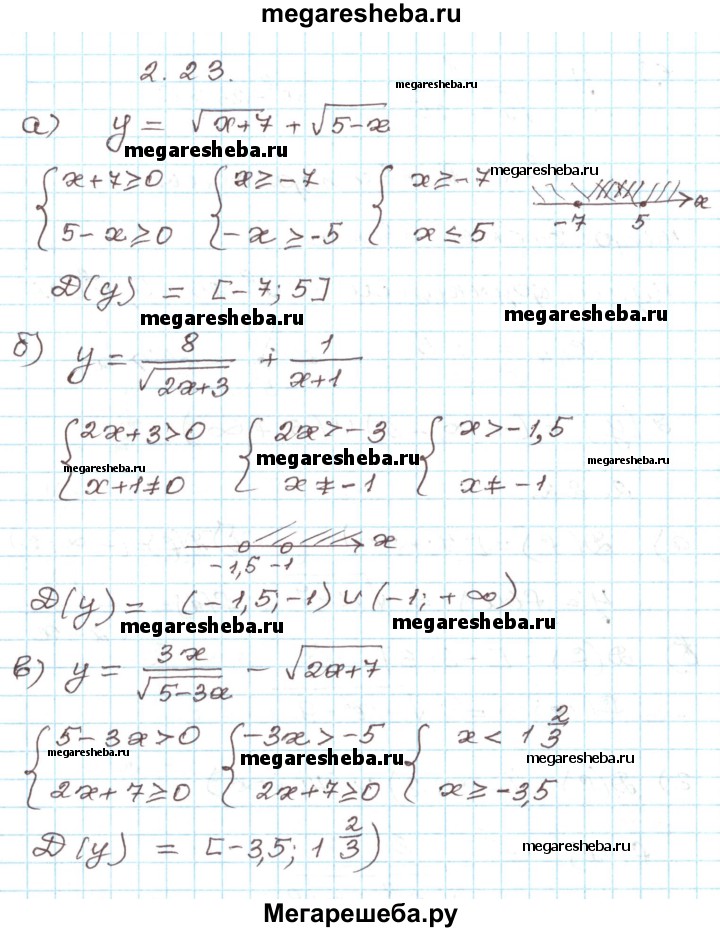 megaresheba.ru
2.23.
megaresheba.ru
а) y = √(x+7) + √(5-x)
megaresheba.ru
{ x+7≥0 { x≥-7 { x≥-7
megaresheba.ru
{ 5-x≥0 { -x≥-5 { x≤5
-7 5 x
D(y) = [-7; 5]
megaresheba.ru megaresheba.ru
б) y = 8/√(2x+3) + 1/(x+1)
{ 2x+3>0 { 2x>-3 { x>-1,5
megaresheba.ru megaresheba.ru megaresheba.ru
{ x+1≠0 { x≠-1 { x≠-1
-1,5 -1 x
D(y) = (-1,5; -1) ∪ (-1; +∞)
megaresheba.ru megaresheba.ru
в) y = 3x/√(5-3x) - √(2x+7)
{ 5-3x>0 { -3x>-5 { x< 1 2/3
megaresheba.ru megaresheba.ru megaresheba.ru
{ 2x+7≥0 { 2x+7≥0 { x≥-3,5
D(y) = [-3,5; 1 2/3)
megaresheba.ru
Мегарешеба.ру